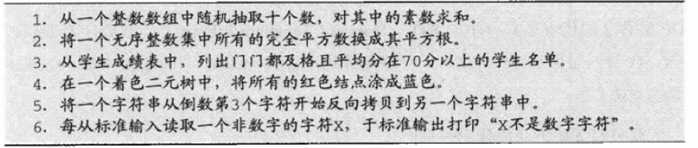 1. 从一个整数数组中随机抽取十个数，对其中的素数求和。
2. 将一个无序整数集中所有的完全平方数换成其平方根。
3. 从学生成绩表中，列出门门都及格且平均分在70分以上的学生名单.
4. 在一个着色二元树中，将所有的红色结点涂成蓝色。
5. 将一个字符串从倒数第3个字符开始反向拷贝到另一个字符串中。
6. 每从标准输入读取一个非数字的字符X，于标准输出打印“X不是数字字符”。